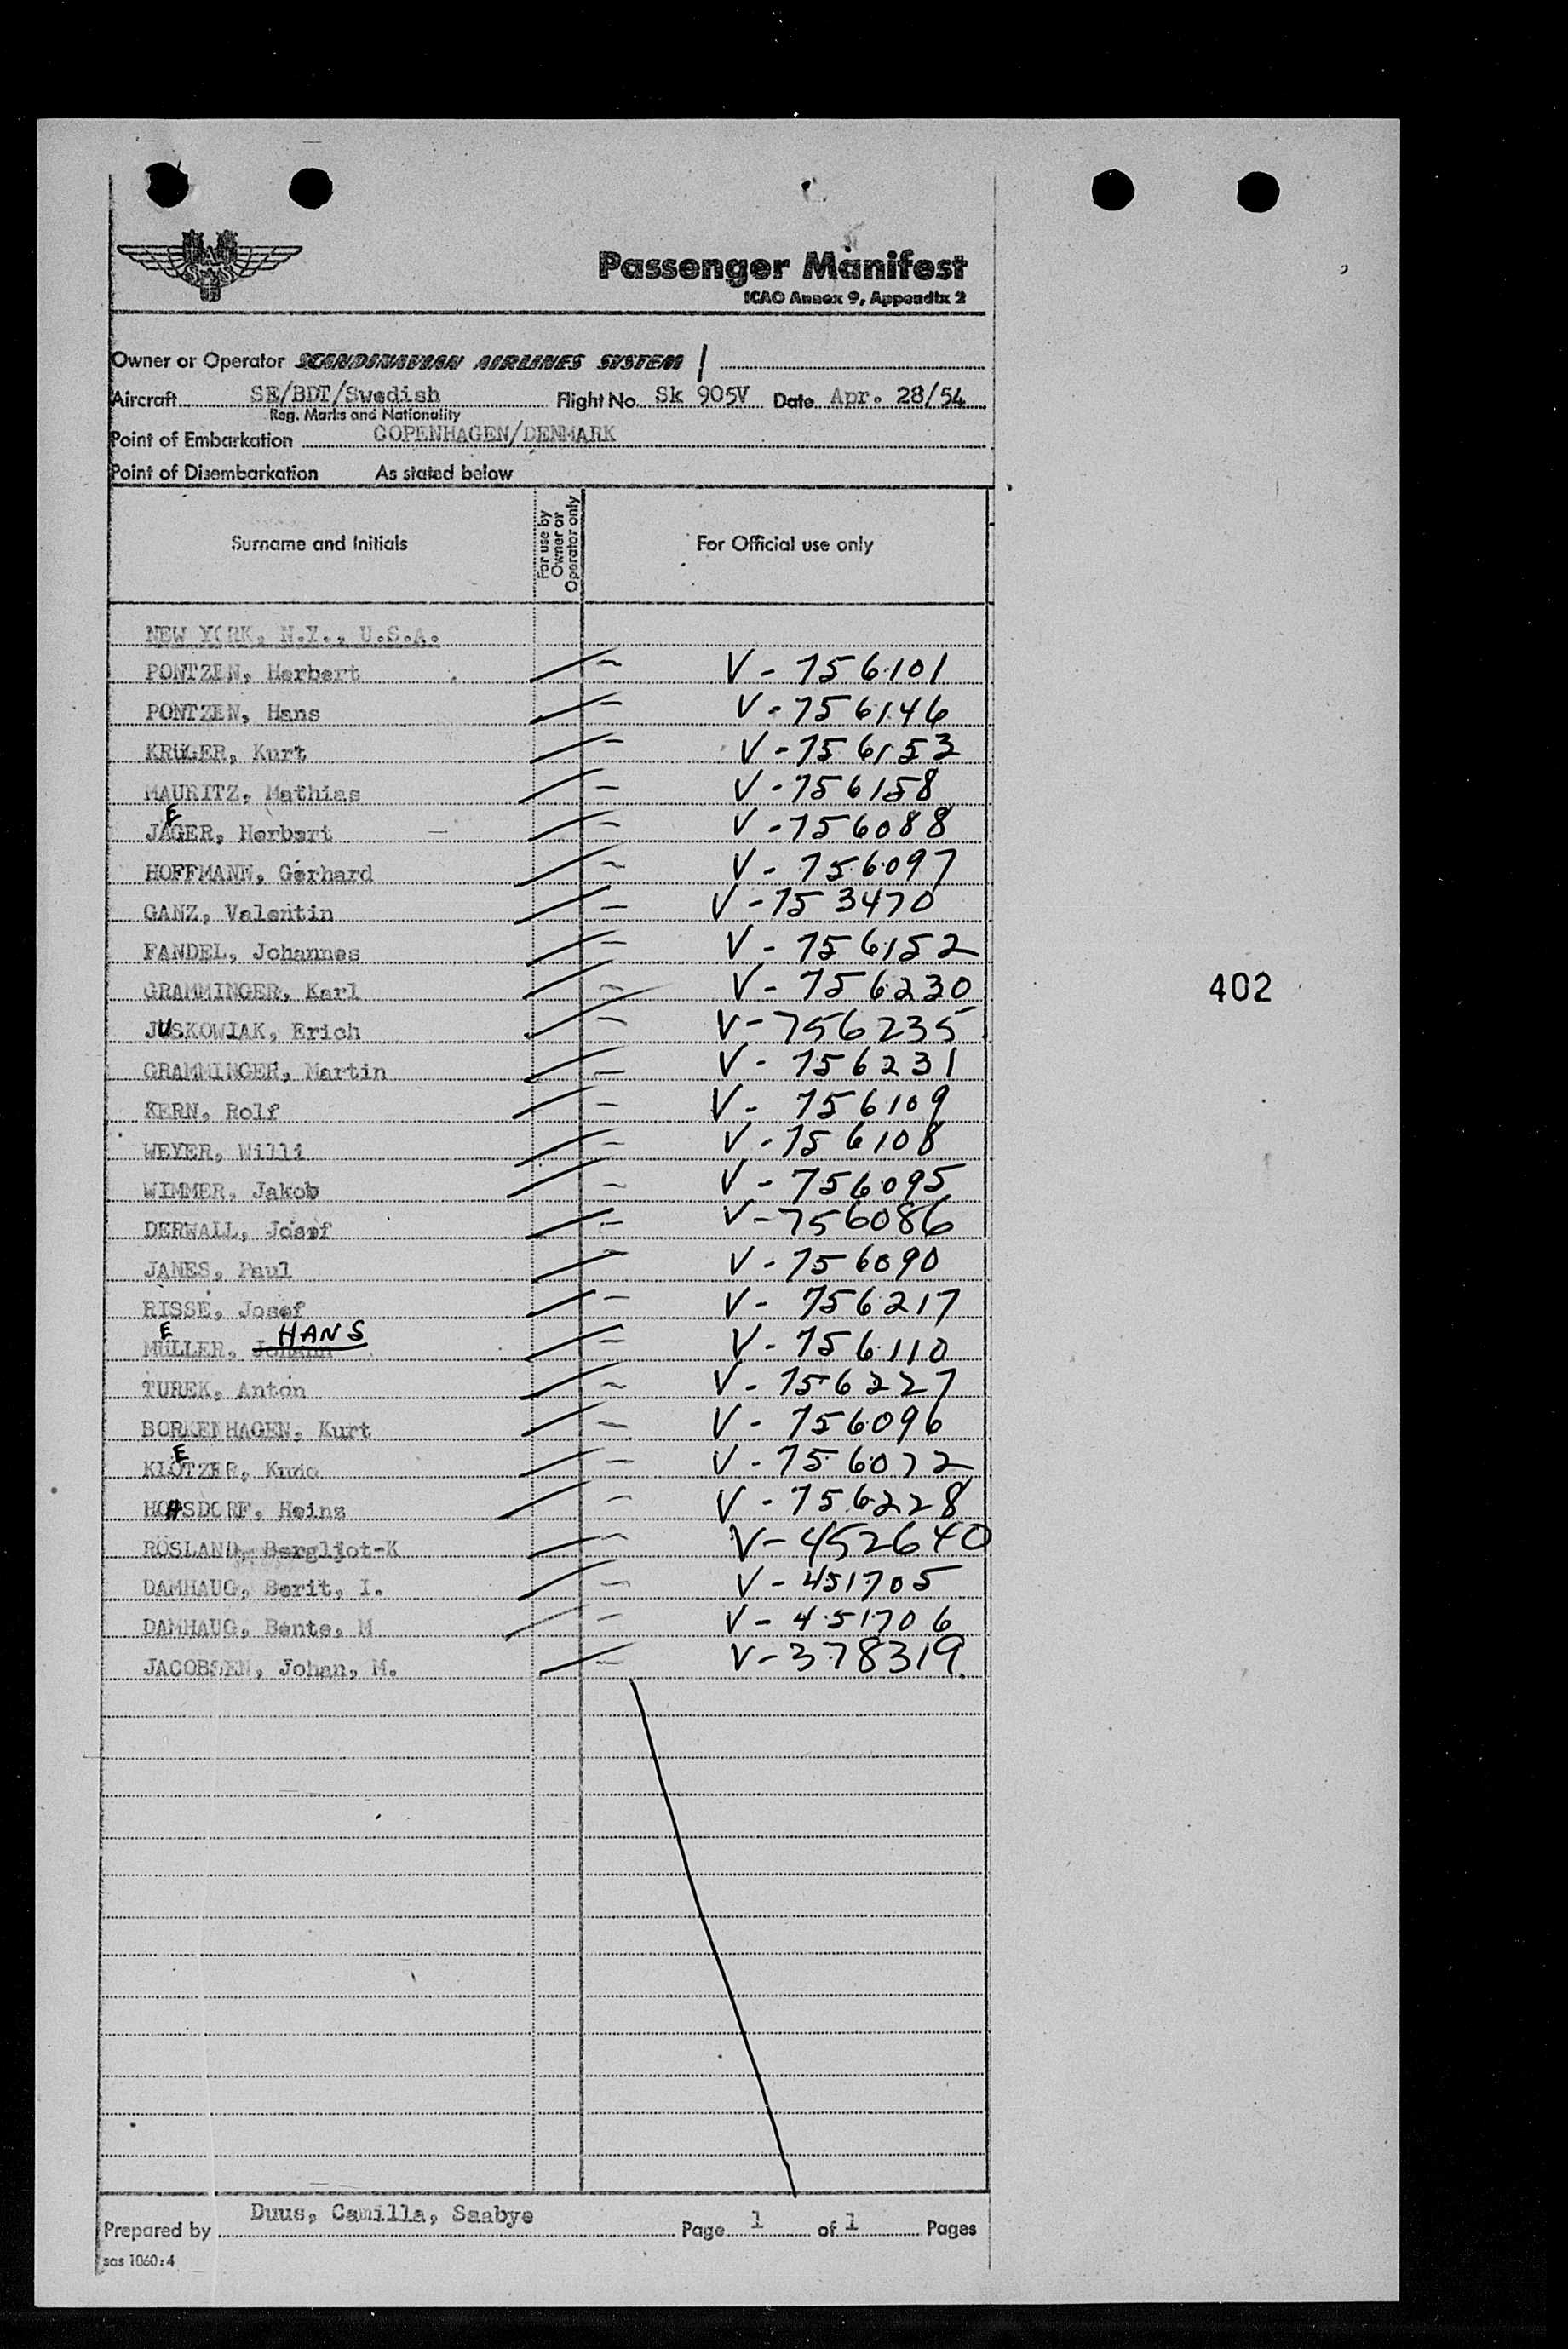 SAS
Passenger Manifest
ICAO Annex 9, Appendix 2
Owner or Operator SCANDINAVIAN AIRLINES SYSTEM /
Aircraft SE/BDT/Swedish Flight No. Sk 905V Date Apr. 28/54
Reg. Marks and Nationality
Point of Embarkation COPENHAGEN/DENMARK
Point of Disembarkation As stated below
Surname and Initials For use by Owner or Operator only For Official use only
NEW YORK, N.Y., U.S.A.
PONTZEN, Herbert V - 756101
PONTZEN, Hans V - 756146
KRUGER, Kurt V - 756153
MAURITZ, Mathias V - 756158
E
JAGER, Herbert V - 756088
HOFFMANN, Gerhard V - 756097
GANZ, Valentin V - 753470
FANDEL, Johannes V - 756152
402
GRAMMINGER, Karl V - 756230
JUSKOWIAK, Erich V - 756235
GRAMMINGER, Martin V - 756231
KERN, Rolf V - 756109
WEYER, Willi V - 756108
WIMMER, Jakob V - 756095
DERWALL, Josef V - 756086
JANES, Paul V - 756090
RISSE, Josef V - 756217
E HANS
MULLER, Johann V - 756110
TUREK, Anton V - 756227
BORKENHAGEN, Kurt V - 756096
E
KLOTZER, Kuno V - 756072
HOHSDORF, Heinz V - 756228
RÖSLAND, Bergljot-K V - 452640
DAMHAUG, Berit, I. V - 451705
DAMHAUG, Bente, M V - 451706
JACOBSEN, Johan, M. V - 378319
Prepared by Duus, Camilla, Saabye Page 1 of 1 Pages
sas 1060:4